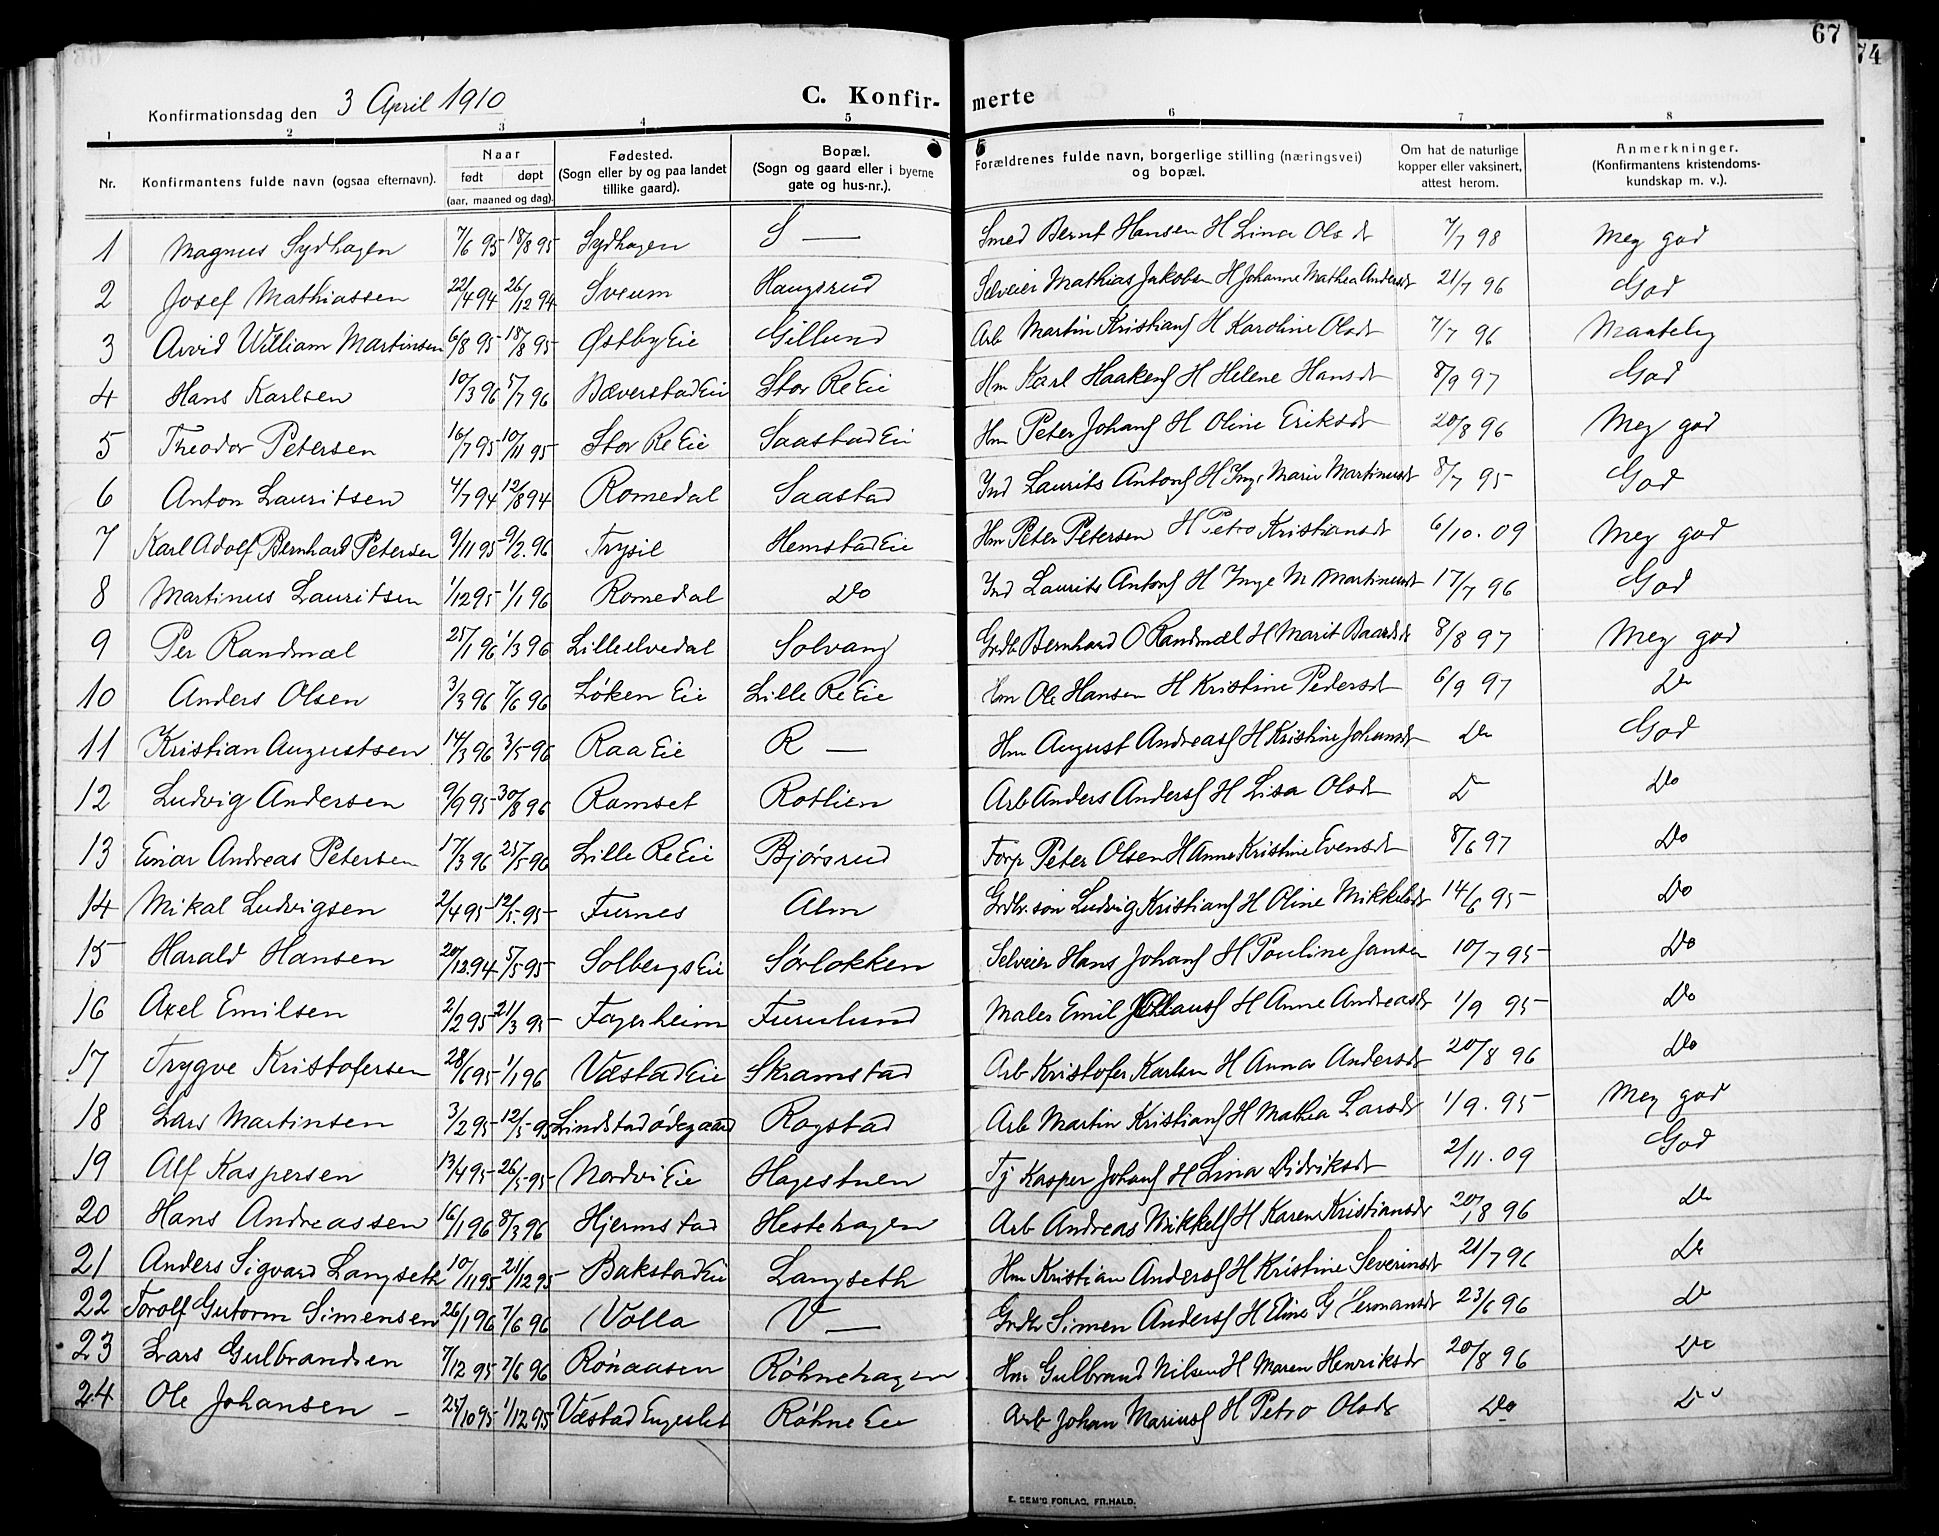 67
74
Konfirmationsdag den 3 April 1910 C. Konfir- merte
1 2 3 4 5 6 7 8
Nr. Konfirmantens fulde navn (ogsaa efternavn). Naar født døpt (aar, maaned og dag). Fødested. (Sogn eller by og paa landet tillike gaard). Bopæl. (Sogn og gaard eller i byerne gate og hus-nr.). Forældrenes fulde navn, borgerlige stilling (næringsvei) og bopæl. Om hat de naturlige kopper eller vaksinert, attest herom. Anmerkninger. (Konfirmantens kristendoms- kundskap m. v.).
1 Magnus Sydhagen 7/6 95 18/8 95 Sydhagen S — Smed Bernt Hansen H Lina Olsdt 7/7 98 Meg god
2 Josef Mathiassen 22/4 94 26/12 94 Sveum Haugsrud Selveier Mathias Jakobsen H Johanne Mathea Andersdt 21/7 96 God
3 Arvid William Martinsen 6/8 95 18/8 95 Østby Eie Gillund Arb Martin Kristians H Karoline Olsdt 7/7 96 Maatelig
4 Hans Karlsen 10/3 96 5/7 96 Bæverstad Eie Stor Re Eie Hm Karl Haakens H Helene Hansdt 8/9 97 God
5 Theodor Petersen 16/7 95 10/11 95 Stor Re Eie Saastad Eie Hm Peter Johans H Oline Eriksdt 20/8 96 Meg god
6 Anton Lauritsen 4/7 94 12/8 94 Romedal Saastad Ind Laurits Antons H Inge Marie Martinusdt 8/7 95 God
7 Karl Adolf Bernhard Petersen 9/11 95 9/2. 96 Trysil Hemstad Eie Hm Peter Petersen H Petro Kristiansdt 6/10. 09 Meg god
8 Martinus Lauritsen 1/12 95 1/1 96 Romedal Do Ind Laurits Antons H Inge M Martinusdt 17/7 96 God
9 Per Randmæl 25/1 96 1/3 96 Lilleelvedal Solvang Grdb Bernhard O Randmæl H Marit Baardsdt 8/8 97 Meg god
10 Anders Olsen 3/3 96 7/6 96 Løken Eie Lille Re Eie Hm Ole Hansen H Kristine Pedersdt 6/9 97 Do
11 Kristian Augustsen 14/3 96 3/5 96 Raa Eie R — Hm August Andreass H Kristine Johansdt Do God
12 Ludvig Andersen 9/9 95 30/8 96 Ramset Rotlien Arb Anders Anders H Lisa Olsdt D Do
13 Einar Andreas Petersen 17/3 96 25/5 96 Lille Re Eie Bjørsrud Forp Peter Olsen H Anne Kristine Evensdt 8/6 97 Do
14 Mikal Ludvigsen 2/4 95 12/5. 95 Furnes Alm Grdbr. søn Ludvig Kristians H Oline Mikkelsdt 14/6 95 Do
15 Harald Hansen 20/12 94 5/5 95 Solbergs Eie Sørløkken Selveier Hans Johans H Pouline Jansen 10/7 95 Do
16 Axel Emilsen 2/2 95 21/3 95 Fagerheim Furulund Maler Emil H Anne Andreasdt 1/9 95 Do
17 Trygve Kristofersen 28/6 95 1/1 96 Væstad Eie Skramstad Arb Kristofer Karlsen H Anna Andersdt 20/8 96 Do
18 Lars Martinsen 3/2 95 12/5 95 Lindstadødegaard Rogstad Arb Martin Kristians H Mathea Larsdt 1/9. 95 Meg god
19 Alf Kaspersen 13/4 95 26/5 95 Nordvi Eie Hagestuen Tj Kasper Johans H Lina Didriksdt 2/11. 09 God
20 Hans Andreassen 16/1 96 8/3 96 Hjermstad Hestehagen Arb Andreas Mikkels H Karen Kristiansdt 20/8 96 Do
21 Anders Sigvard Langseth 10/11 95 21/12 95 Bakstad Eie Langseth Hm Kristian Anders H Kristine Severinsdt 21/7 96 Do
22 Torolf Gutorm Simensen 26/1 96 7/6 96 Volla V — Grdbr Simen Anders H Eline G Hermansdt 23/6 96 Do
23 Lars Gulbrandsen 7/12 95 7/6 96 Rønaasen Røhnehagen Hm Gulbrand Nilsen H Maren Henriksdt 20/8 96 Do
24 Ole Johansen — 25/10 95 1/12 95 Væstad Engeslet Røhne Eie Arb Johan Marius H Petro Olsdt Do Do
E. SEM'S FORLAG, FR.HALD.